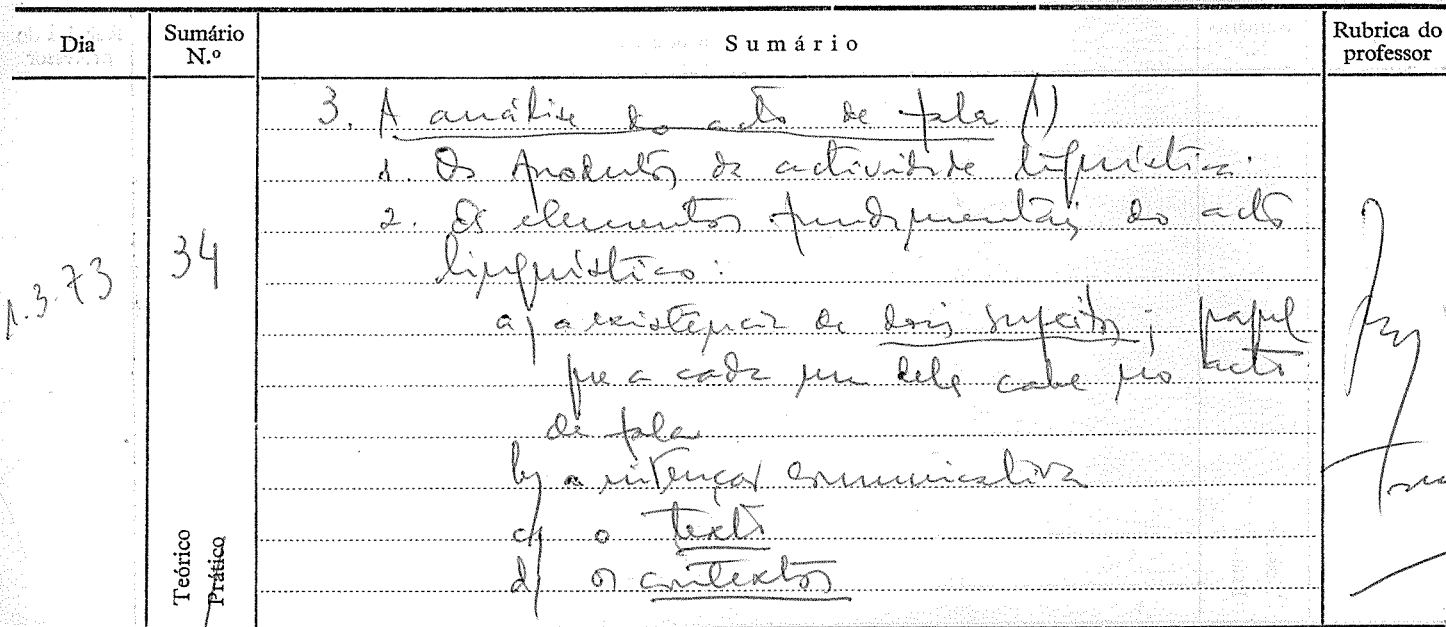 Dia
Sumário N.º
Sumário
Rubrica do professor
1.3.73
34
Teórico
Prático
3. A análise do acto de fala (1)
1. Os produtos da actividade linguística.
2. Os elementos fundamentais do acto
linguístico:
a) a existência de dois sujeitos; papel
que a cada um deles cabe no acto
de fala
b) a intenção comunicativa
c) o texto
d) os contextos